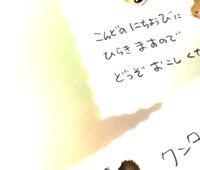 こんどの にちようびに
ひらき ますので
どうぞ おこしくだ
ワンワ